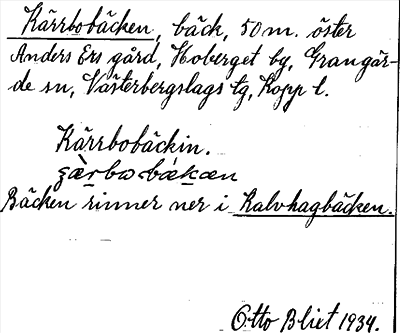 Kärrbobäcken, bäck, 50 m. öster
Anders Ers gård, Hoberget by, Grangär-
de sn, Västerbergslags tg, Kopp l.
Kärrbobäckin.
Bäcken rinner ner i Kalvhagbäcken.
Otto Blixt 1934.